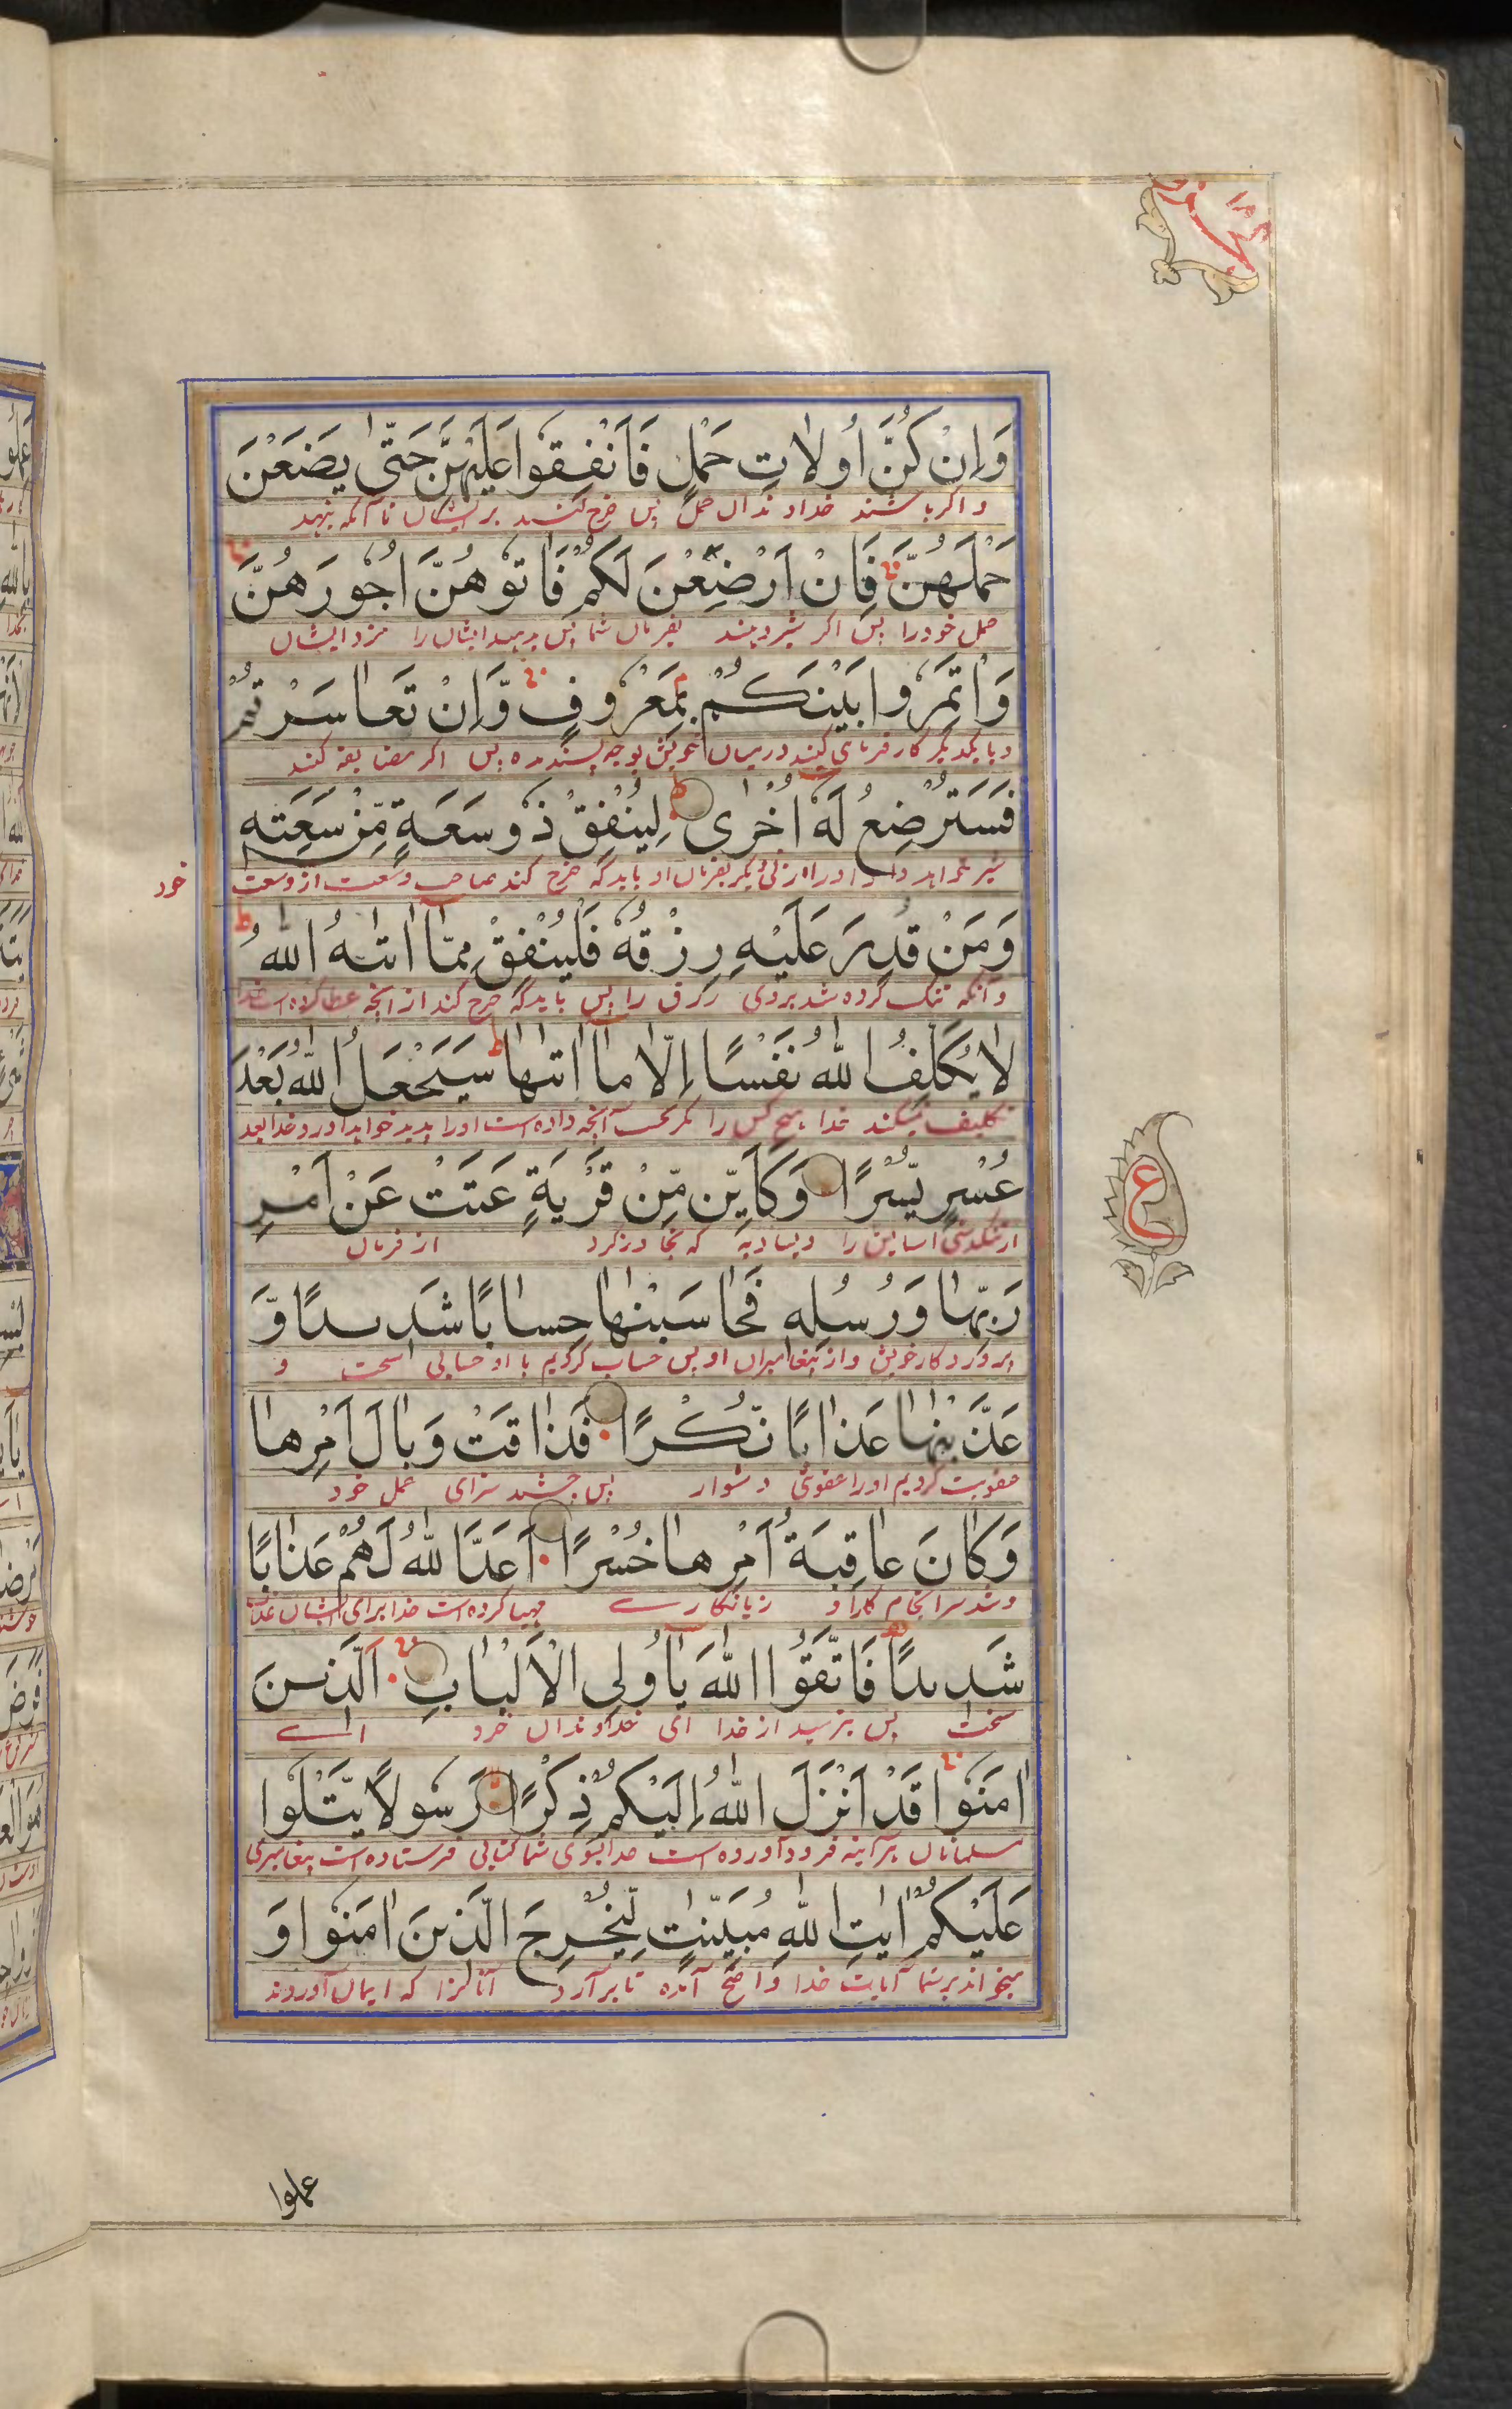 وَاِنْ كُنَّ اُولَاتِ حَمْلٍ فَاَنْفِقُوْا عَلَيْهِنَّ حَتّٰى يَضَعْنَ
و اگر باشند خداوندان حمل پس خرج کنید بر ایشان تا آنکه بنهند
حَمْلَهُنَّ فَاِنْ اَرْضَعْنَ لَكُمْ فَاٰتُوْهُنَّ اُجُوْرَهُنَّ
حمل خود را پس اگر شیر دهند بفرمان شما پس بدهید ایشان را مزد ایشان
وَاْتَمِرُوْا بَيْنَكُمْ بِمَعْرُوْفٍ وَّاِنْ تَعَاسَرْتُمْ
و با یکدیگر کار فرمائی کنید درمیان خویش بوجه پسندیده پس اگر مضایقه کنند
فَسَتُرْضِعُ لَهٗ اُخْرٰى لِيُنْفِقْ ذُوْ سَعَةٍ مِّنْ سَعَتِهٖ
شیر خواهد داد او را زنی دیگر بفرمان او باید که خرج کند صاحب وسعت از وسعت
خود
وَمَنْ قُدِرَ عَلَيْهِ رِزْقُهٗ فَلْيُنْفِقْ مِمَّآ اٰتٰىهُ اللّٰهُ
و آنکه تنگ کرده شد بروی رزق را پس باید که خرج کند از آنچه عطا کرده است خدا
لَا يُكَلِّفُ اللّٰهُ نَفْسًا اِلَّا مَآ اٰتٰىهَا سَيَجْعَلُ اللّٰهُ بَعْدَ
تکلیف نمیکند خدا هیچ کس را مگر بحسب آنچه داده است او را پدید خواهد آورد خدا بعد
عُسْرٍ يُّسْرًا وَكَاَيِّنْ مِّنْ قَرْيَةٍ عَتَتْ عَنْ اَمْرِ
از تنگدستی آسایش را و بسا دیه که تجاوز کرد از فرمان
رَبِّهَا وَرُسُلِهٖ فَحَاسَبْنٰهَا حِسَابًا شَدِيْدًا وَّ
پروردگار خویش و از پیغامبران او پس حساب کردیم با او حسابی سخت و
عَذَّبْنٰهَا عَذَابًا نُّكْرًا فَذَاقَتْ وَبَالَ اَمْرِهَا
عقوبت کردیم او را عقوبتی دشوار پس چشید سزای عمل خود
وَكَانَ عَاقِبَةُ اَمْرِهَا خُسْرًا اَعَدَّ اللّٰهُ لَهُمْ عَذَابًا
و شد سرانجام کار او زیانکاری مهیا کرده است خدا برای ایشان عذاب
شَدِيْدًا فَاتَّقُوا اللّٰهَ يٰٓاُولِى الْاَلْبَابِ الَّذِيْنَ
سخت پس بترسید از خدا ای خداوندان خرد اے
اٰمَنُوْا قَدْ اَنْزَلَ اللّٰهُ اِلَيْكُمْ ذِكْرًا رَّسُوْلًا يَّتْلُوْا
مسلمانان هرآینه فرود آورده است خدا بسوی شما کتابی فرستاده است پیغامبری
عَلَيْكُمْ اٰيٰتِ اللّٰهِ مُبَيِّنٰتٍ لِّيُخْرِجَ الَّذِيْنَ اٰمَنُوْا وَ
میخواند بر شما آیات خدا واضح آمده تا برآرد آنانرا که ایمان آوردند
ع
عملوا